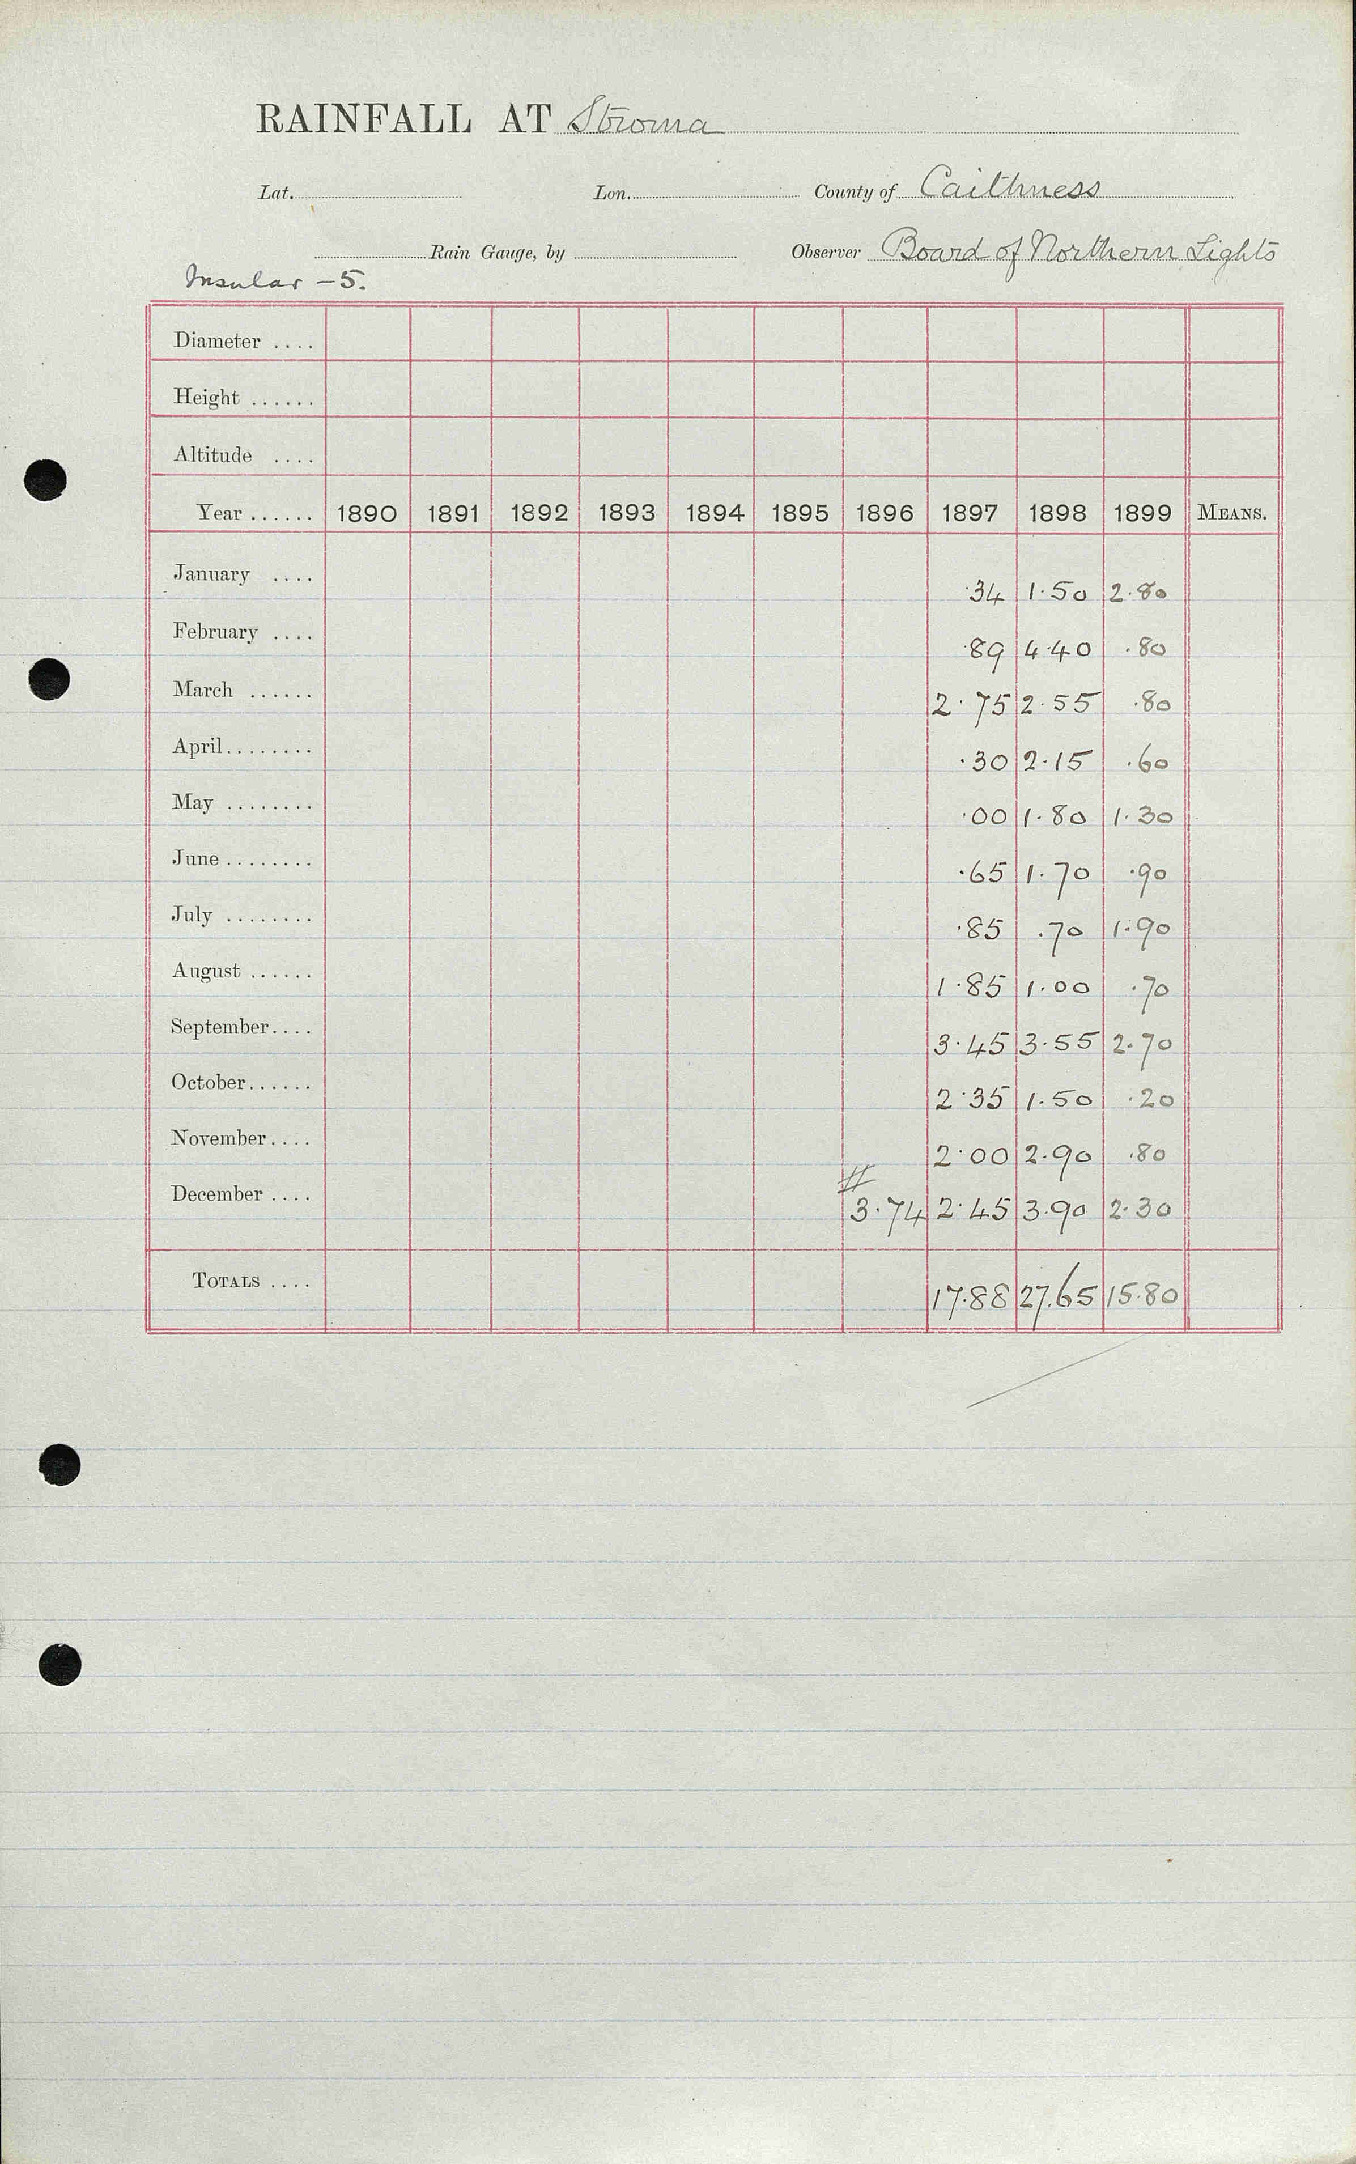 RAINFALL AT Stroma
Lat. Lon. County of Caithness
Rain Gauge, by Observer Board of Northern Lights
Insular - 5.
Diameter ....
Height ......
Altitude ....
Year ...... 1890 1891 1892 1893 1894 1895 1896 1897 1898 1899 MEANS.
January .... ·34 1·50 2·80
February .... ·89 4·40 ·80
March ...... 2·75 2·55 ·80
April........ ·30 2·15 ·60
May ........ ·00 1·80 1·30
June ........ ·65 1·70 ·90
July ........ ·85 ·70 1·90
August ...... 1·85 1·00 ·70
September.... 3·45 3·55 2·70
October...... 2·35 1·50 ·20
November.... 2·00 2·90 ·80
#
December .... 3·74 2·45 3·90 2·30
TOTALS .... 17·88 27.65 15·80